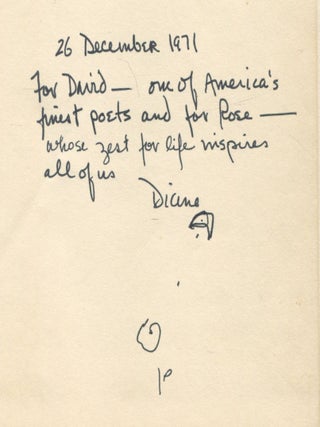 26 December 1971
For David — one of America's
finest poets and for Rose —
whose zest for life inspires
all of us
Diane